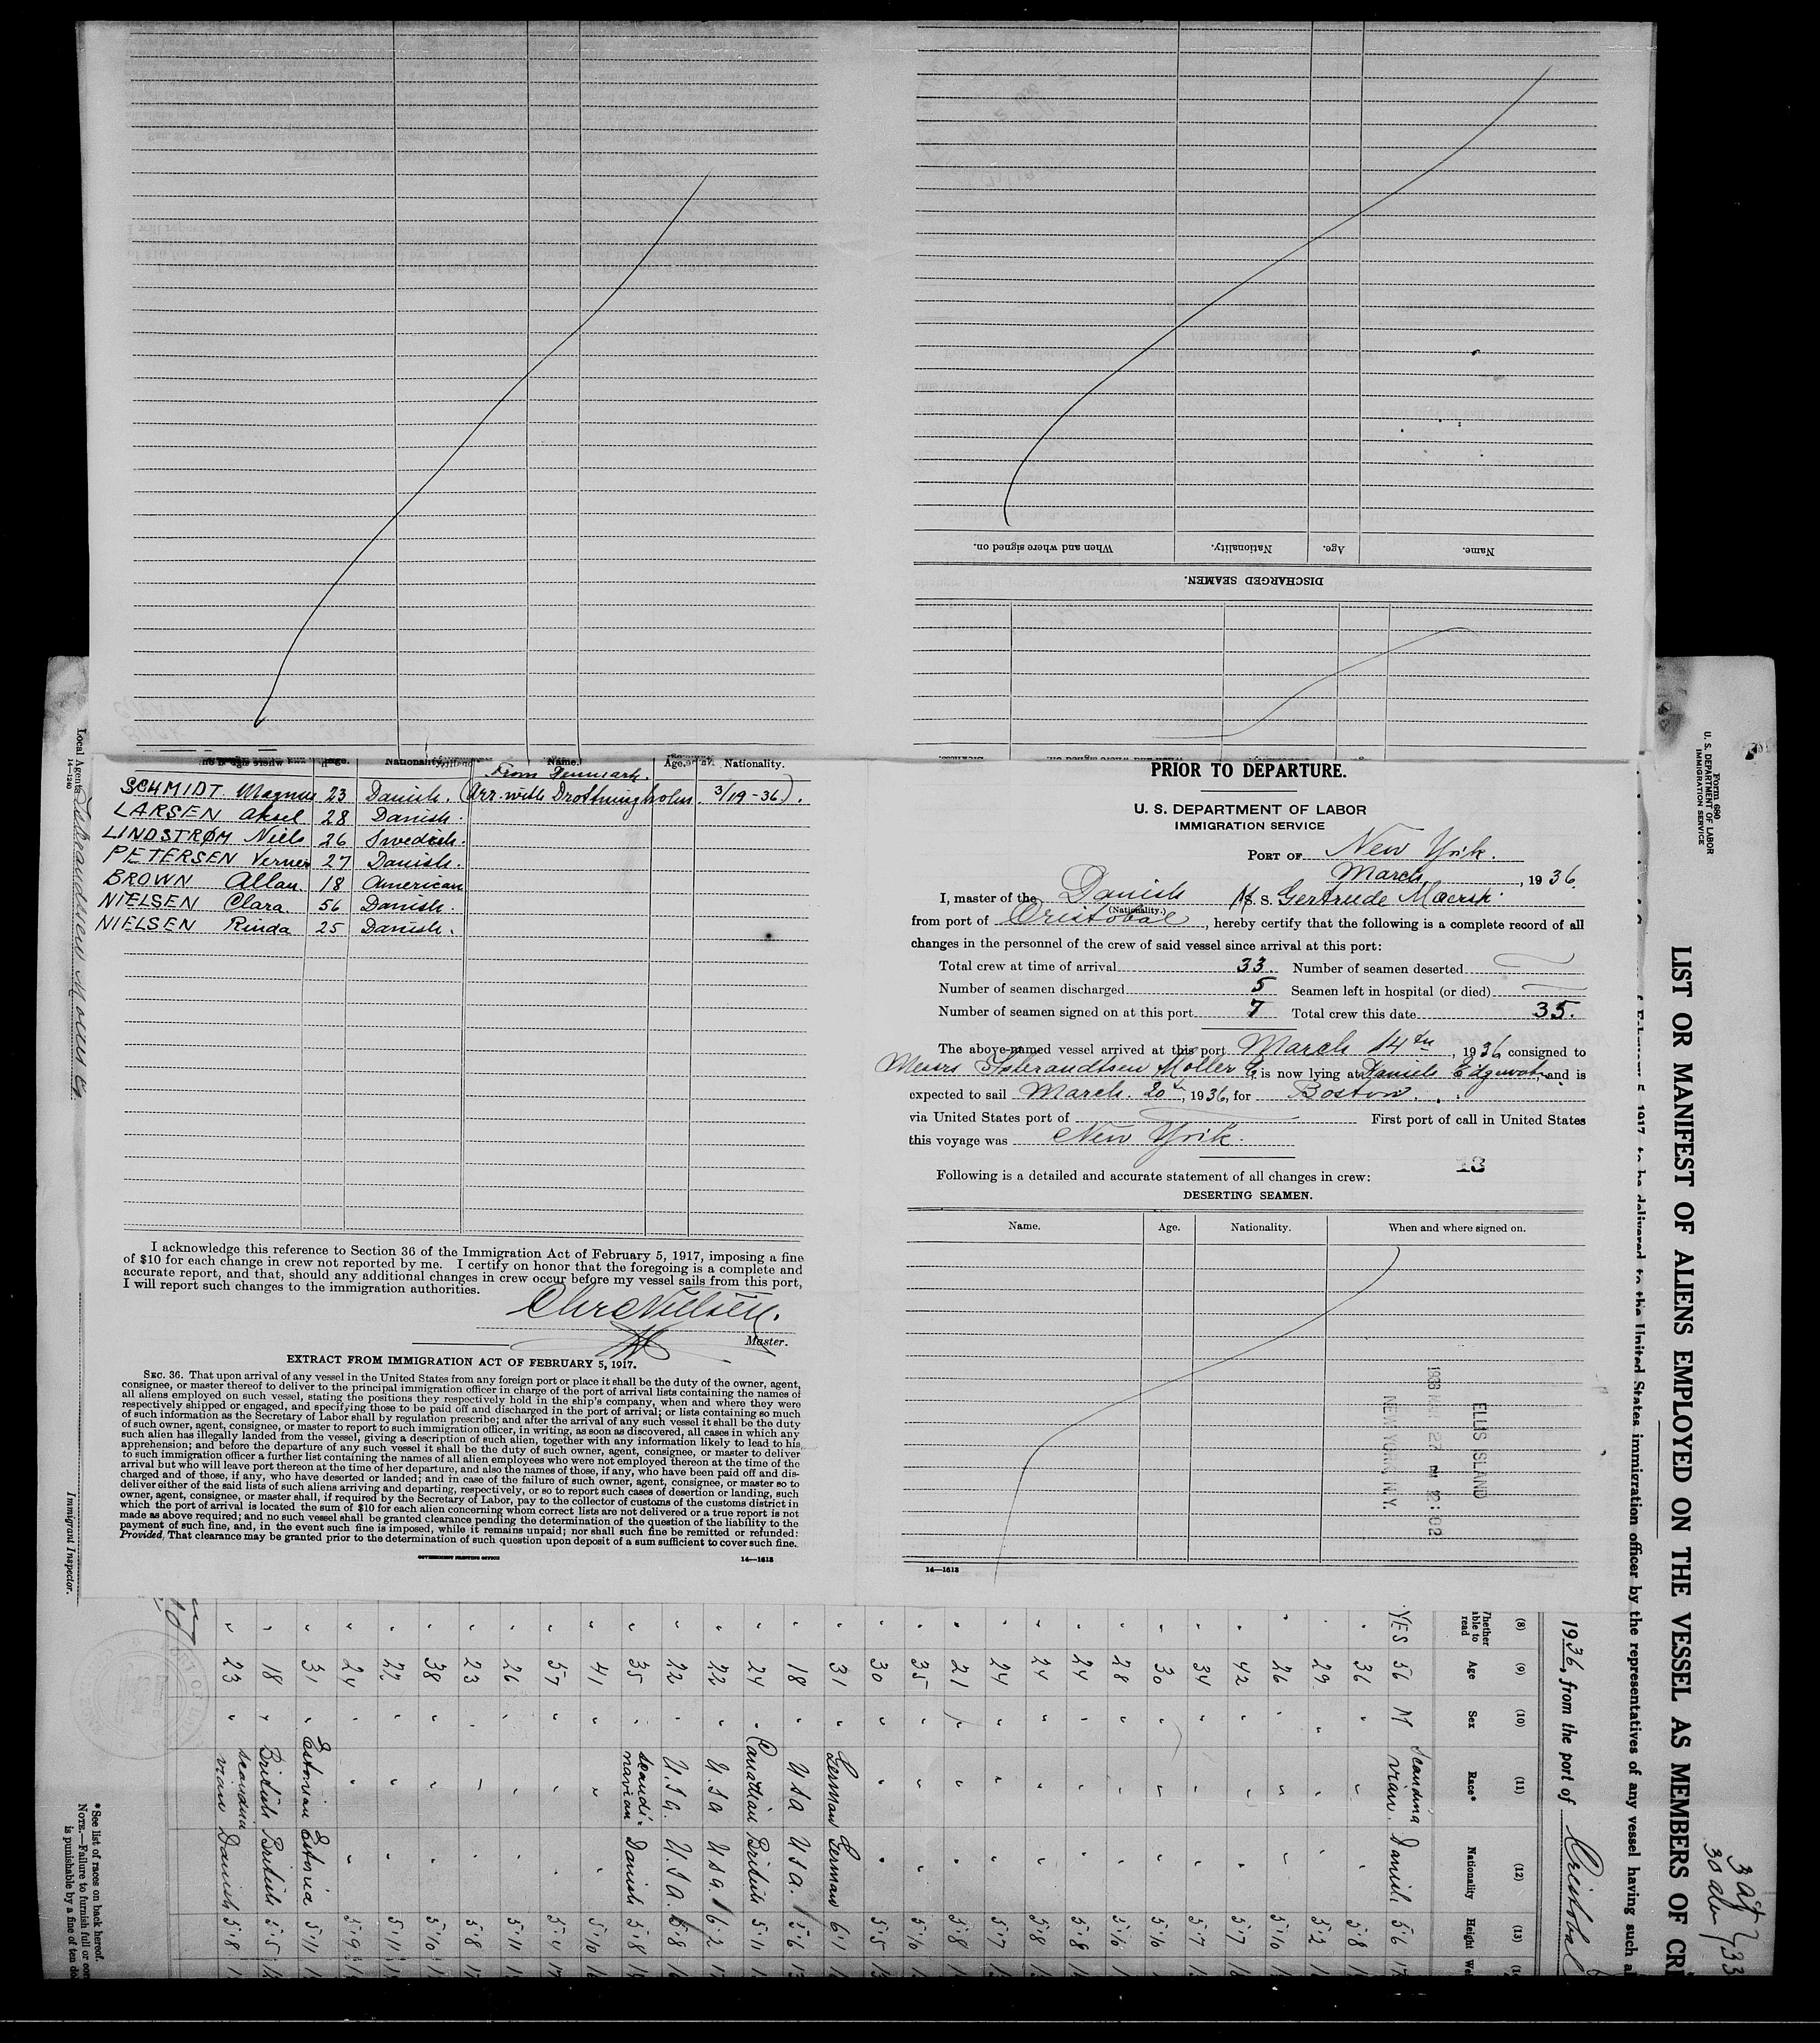 When and where signed on.
Nationality.
Age.
Name.
DISCHARGED SEAMEN.
Age.
Nationality
Name.
Age.
Nationality.
From Denmark.
SCHMIDT Magnus 23 Danish. (Arr. with Drottningholm 3/19-36).
LARSEN Aksel 28 Danish.
LINDSTRØM Niels 26 Swedish.
PETERSEN Verner 27 Danish.
BROWN Allan. 18 American
NIELSEN Clara. 56 Danish.
NIELSEN Rinda 25 Danish.
I acknowledge this reference to Section 36 of the Immigration Act of February 5, 1917, imposing a fine
of $10 for each change in crew not reported by me. I certify on honor that the foregoing is a complete and
accurate report, and that, should any additional changes in crew occur before my vessel sails from this port,
I will report such changes to the immigration authorities.
Chr Nielsen.
Master.
EXTRACT FROM IMMIGRATION ACT OF FEBRUARY 5, 1917.
SEC. 36. That upon arrival of any vessel in the United States from any foreign port or place it shall be the duty of the owner, agent,
consignee, or master thereof to deliver to the principal immigration officer in charge of the port of arrival lists containing the names of
all aliens employed on such vessel, stating the positions they respectively hold in the ship's company, when and where they were
respectively shipped or engaged, and specifying those to be paid off and discharged in the port of arrival; or lists containing so much
of such information as the Secretary of Labor shall by regulation prescribe; and after the arrival of any such vessel it shall be the duty
of such owner, agent, consignee, or master to report to such immigration officer, in writing, as soon as discovered, all cases in which any
such alien has illegally landed from the vessel, giving a description of such alien, together with any information likely to lead to his
apprehension; and before the departure of any such vessel it shall be the duty of such owner, agent, consignee, or master to deliver
to such immigration officer a further list containing the names of all alien employees who were not employed thereon at the time of the
arrival but who will leave port thereon at the time of her departure, and also the names of those, if any, who have been paid off and dis-
charged and of those, if any, who have deserted or landed; and in case of the failure of such owner, agent, consignee, or master so to
deliver either of the said lists of such aliens arriving and departing, respectively, or so to report such cases of desertion or landing, such
owner, agent, consignee, or master shall, if required by the Secretary of Labor, pay to the collector of customs of the customs district in
which the port of arrival is located the sum of $10 for each alien concerning whom correct lists are not delivered or a true report is not
made as above required; and no such vessel shall be granted clearance pending the determination of the question of the liability to the
payment of such fine, and, in the event such fine is imposed, while it remains unpaid; nor shall such fine be remitted or refunded:
Provided, That clearance may be granted prior to the determination of such question upon deposit of a sum sufficient to cover such fine.
GOVERNMENT PRINTING OFFICE
14—1613
PRIOR TO DEPARTURE.
U. S. DEPARTMENT OF LABOR
IMMIGRATION SERVICE
PORT OF New York.
March, 1936.
I, master of the Danish M. S. Gertrude Maersk
(Nationality.)
from port of Cristobal, hereby certify that the following is a complete record of all
changes in the personnel of the crew of said vessel since arrival at this port:
Total crew at time of arrival 33. Number of seamen deserted
Number of seamen discharged 5 Seamen left in hospital (or died)
Number of seamen signed on at this port 7 Total crew this date 35.
The above-named vessel arrived at this port March 14th, 1936 consigned to
Messrs Isbrandtsen Moller C is now lying at Daniels Edgewater, and is
expected to sail March. 20, 1936, for Boston.
via United States port of First port of call in United States
this voyage was New York.
13
Following is a detailed and accurate statement of all changes in crew:
DESERTING SEAMEN.
Name. Age. Nationality. When and where signed on.
ELLIS ISLAND
NEW YORK N.Y.
14—1613
Local Agents Isbrandtsen Moller Co.
14—1240
Immigrant Inspector.
Form 680
U. S. DEPARTMENT OF LABOR
IMMIGRATION SERVICE
LIST OR MANIFEST OF ALIENS EMPLOYED ON THE VESSEL AS MEMBERS OF CR
February 5, 1917, to be delivered to the United States immigration officer by the representatives of any vessel having such al
1936, from the port of Cristobal
30 alien
33
(8) (9) (10) (11) (12) (13)
Whether able to read Age Sex Race* Nationality Height We
YES 56 M Scandinavian Danish 5 6
" 36 " " " 5 8
" 29 " " " 5 2
" 26 " " " 5 10
" 42 " " " 5 7
" 34 " " " 5 7
" 30 " " " 5 10
" 28 " " " 5 10
" 24 " " " 5 8
" 24 " " " 5 8
" 24 " " " 5 7
" 21 " " " 5 8
" 35 " " " 5 10
" 30 " " " 5 5
" 31 " German German 6 1
" 18 " USA USA. 5 6
" 24 " Canadian British 5 11
" 22 " U.S.A U.S.A. 6 2
" 22 " U.S.A. U.S.A. 5 8
" 35 " Scandinavian Danish 5 8
" 41 " " " 5 10
" 57 " " " 5 4
" 26 " " " 5 11
" 23 " " " 5 8
" 38 " " " 5 10
" 27 " " " 5 11
" 24 " " " 5 9
" 31 " Estonian Estonia 5 11
" 18 " British British 5 5
" 23 " Scandinavian Danish 5 8
*See list of races on back hereof.
NOTE.—Failure to furnish full or cor
is punishable by a fine of ten do